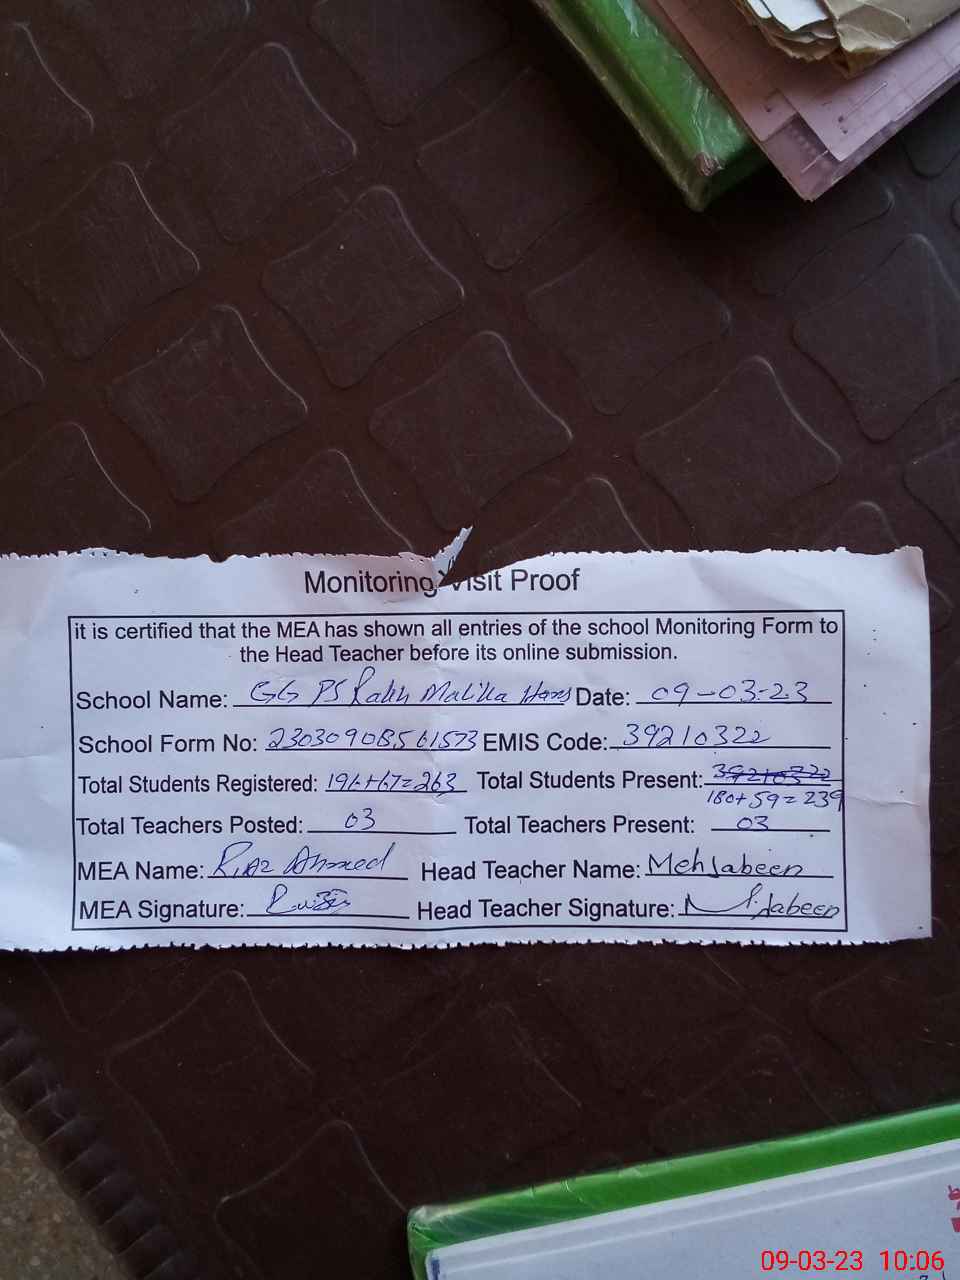 Monitoring Visit Proof
it is certified that the MEA has shown all entries of the school Monitoring Form to
the Head Teacher before its online submission.
School Name: GG PS Rakh Malika Hans Date: 09-03-23
School Form No: 230309085,61573 EMIS Code: 39210322
Total Students Registered: 196+67=263 Total Students Present: 39210322
180+59=239
Total Teachers Posted: 03 Total Teachers Present: 03
MEA Name: Riaz Ahmed Head Teacher Name: Mehjabeen
MEA Signature: Head Teacher Signature: M.Jabeen
09-03-23 10:06